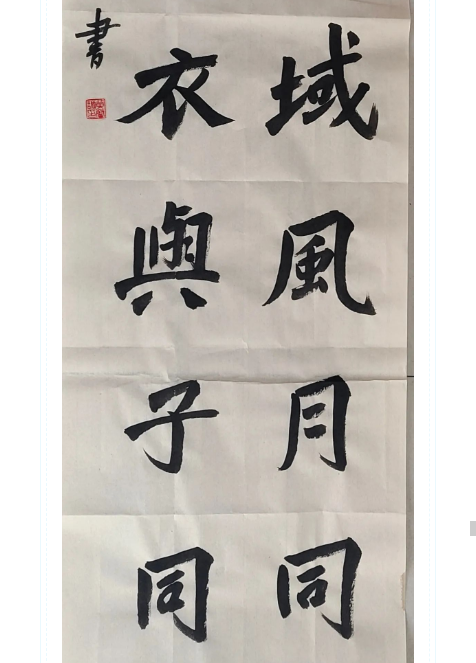 域風月同
衣與子同
書